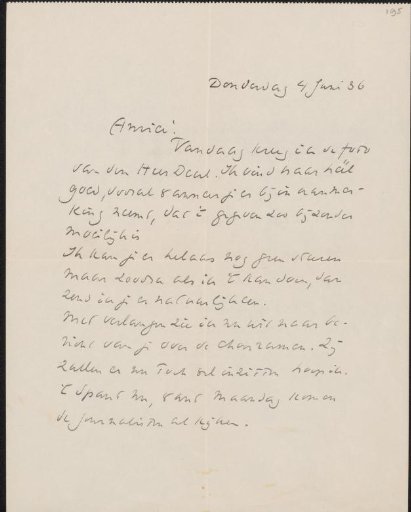 195
Donderdag 4 Juni 36
Amici!
Vandaag kreeg ik de foto
van den Heer Deul. Ik vind haar heel
goed, vooral wanneer je er bij in aanmer-
king neemt, dat 't gegeven zoo bijzonder
moeilijk is
Ik kan je er helaas nog geen sturen
maar zoodra als ik 't kan doen, dan
zend ik je er natuurlijk een.
Met verlangen zie ik nu uit naar be-
richt van je over de chrysanten. Zij
zullen er nu toch wel inzitten hoop ik.
't Spant nu, want Maandag komen
de journalisten al kijken.